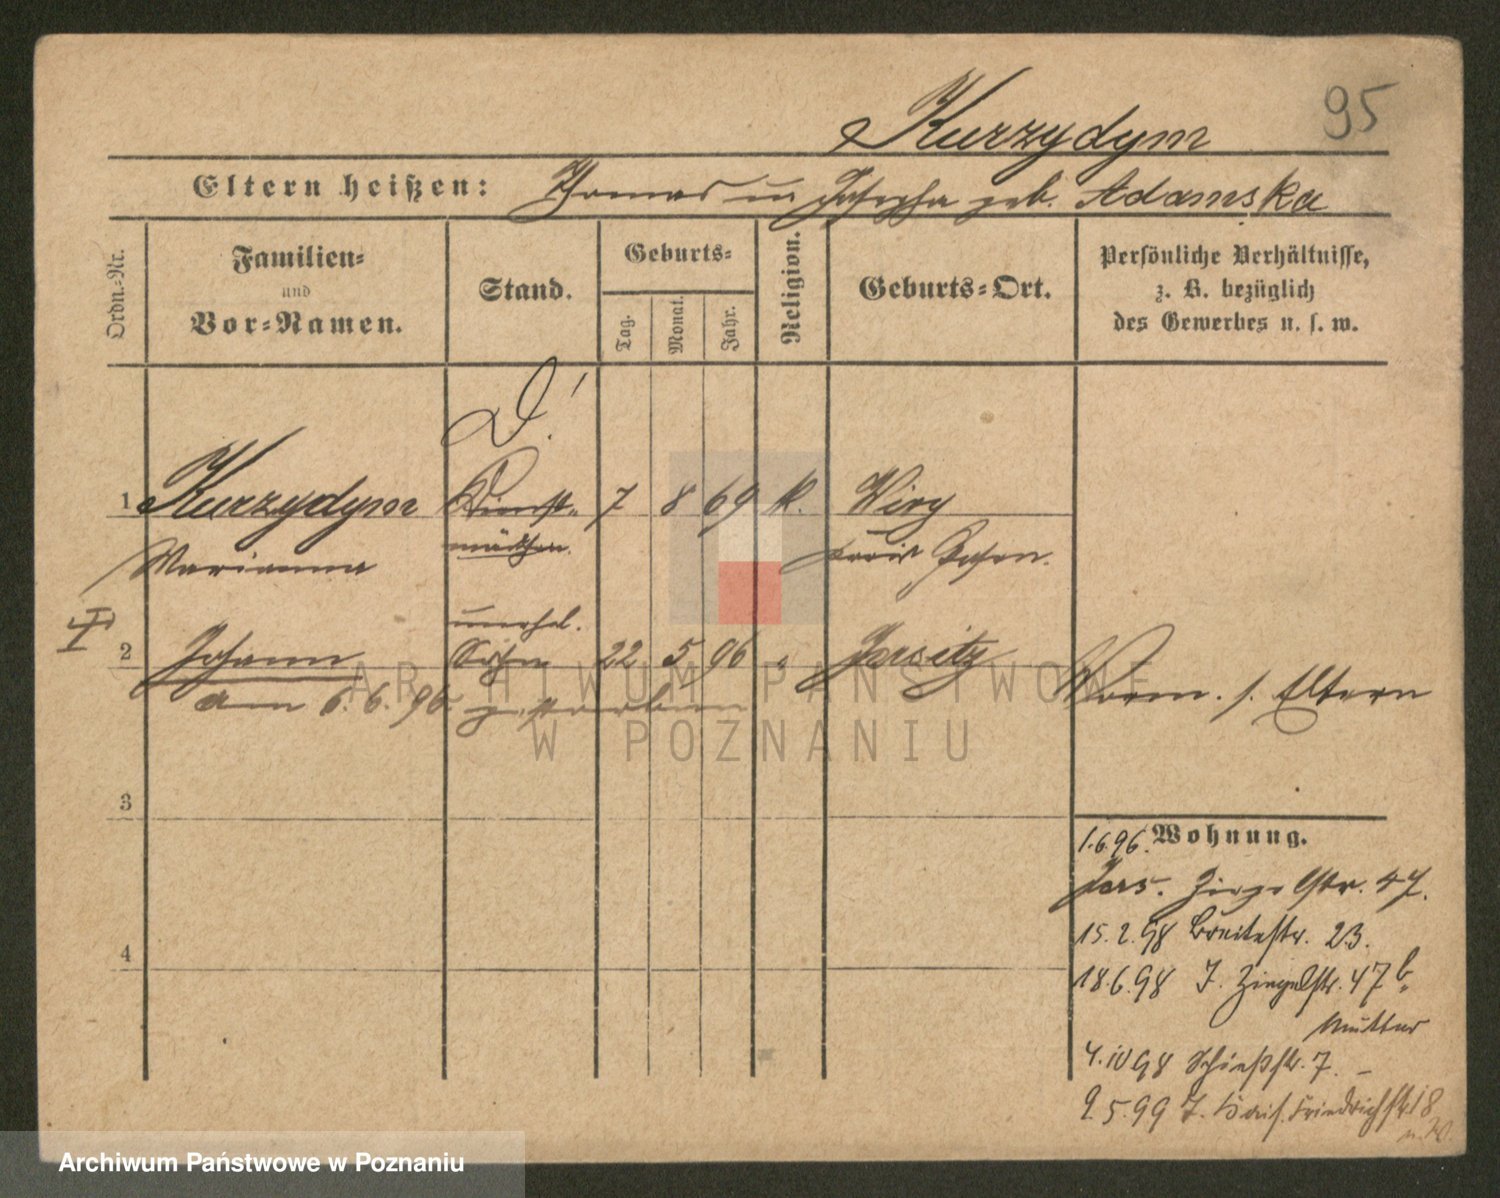 95
Kurzydym
Eltern heißen: Thomas u Josepha geb. Adamska
Ordn.-Nr.
Familien-
und
Vor-Namen.
Stand.
Geburts-
Tag.
Monat.
Jahr.
Religion.
Geburts-Ort.
Persönliche Verhältnisse,
z. B. bezüglich
des Gewerbes u. s. w.
D!
1 Kurzydym Dienst- 7 8 69 k. Wiry
Marianna mädchen. Kreis Posen.
unehel.
2 Johann Sohn 22 5 96 " Jersitz
Vorm. s. Eltern
am 6.6.96 gestorben
3
4
1.6.96. Wohnung.
Jers. Ziegelstr. 47.
15.2.98 Breitestr. 23.
18.6.98 J. Ziegelstr. 47b.
Mutter
4.10 98 Schießstr. 7. –
9.5.99 J. Kais. Friedrichstr. 18
ARCHIWUM PAŃSTWOWE
W POZNANIU
Archiwum Państwowe w Poznaniu